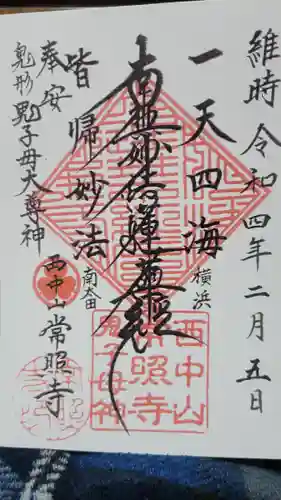 維時令和四年二月五日
一天四海
横浜
南無妙法蓮華経
皆帰妙法
南太田
奉安
鬼形鬼子母大尊神
西中山常照寺
西中山
常照寺
鬼子母神